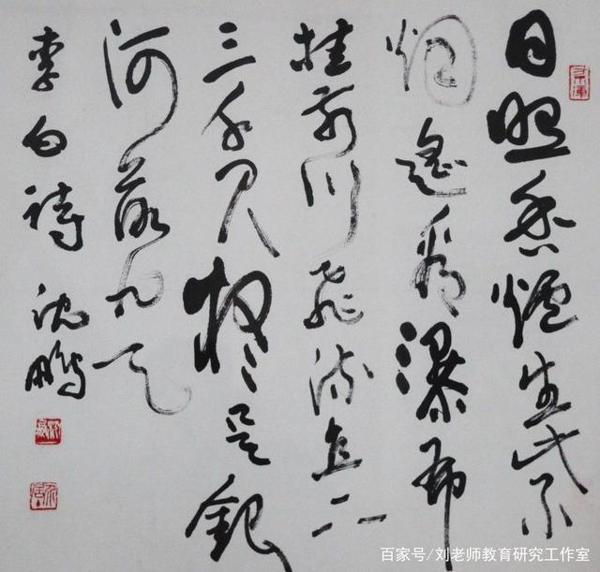 日照香爐生紫
烟遙看瀑布
挂前川飛流直下
三千尺疑是銀
河落九天
李白詩 沈鵬
百家号/刘老师教育研究工作室